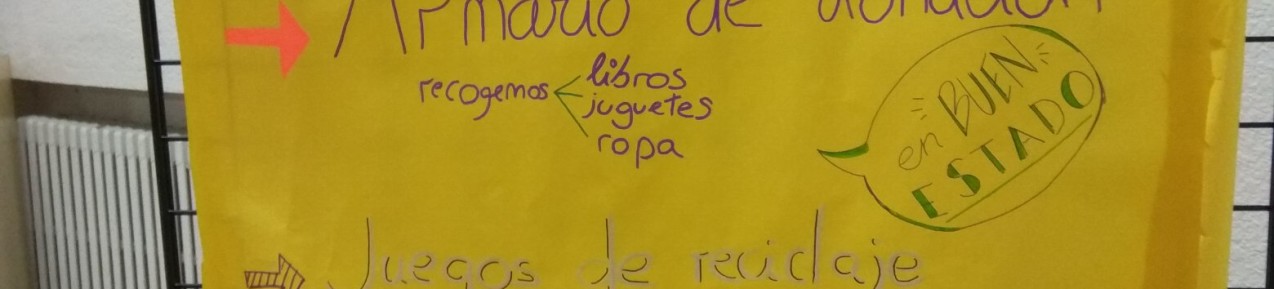 Armario de donación
recogemos
libros
juguetes
ropa
en BUEN
ESTADO
Juegos de reciclaje